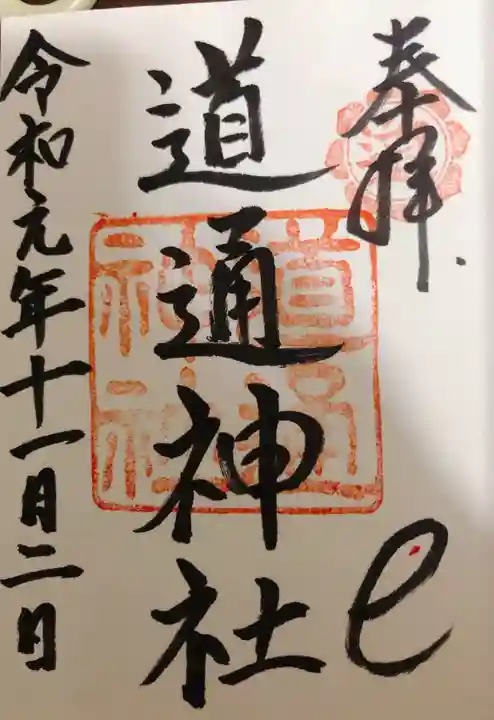 奉拝
道通神社
道通
神社
令和元年十一月二日